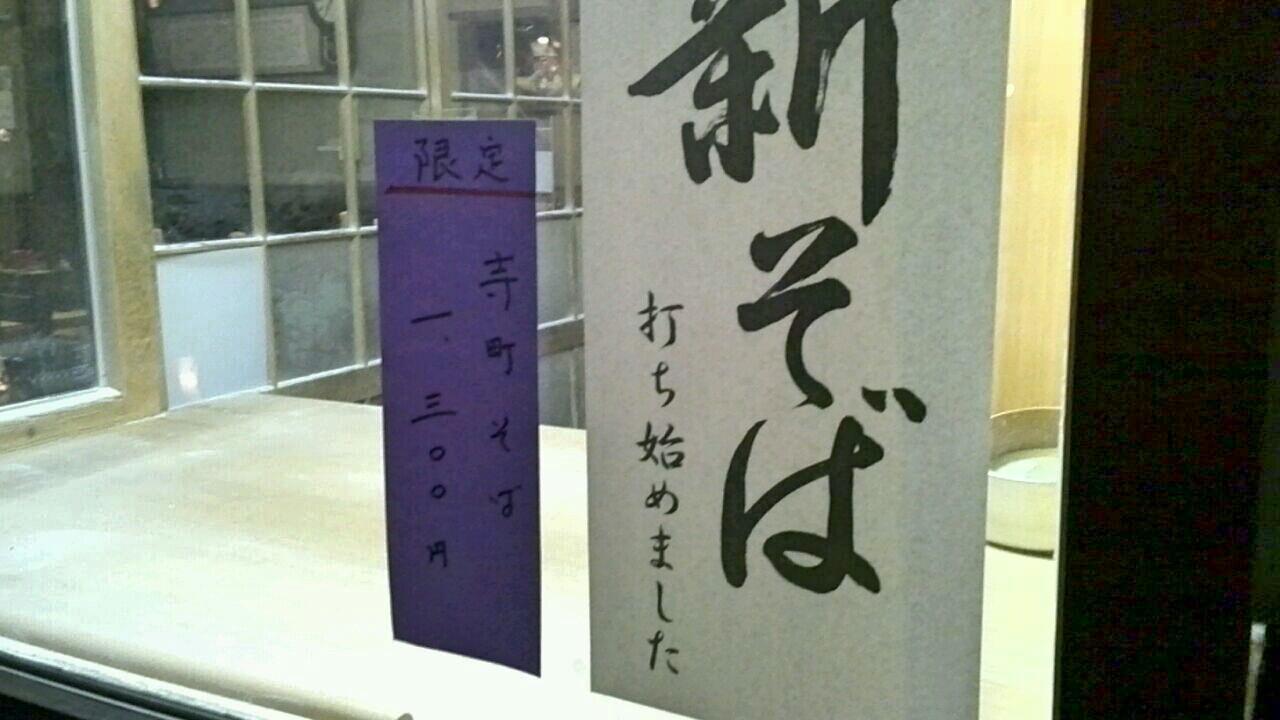 新そば
打ち始めました
限定
寺町そば
一、三〇〇円